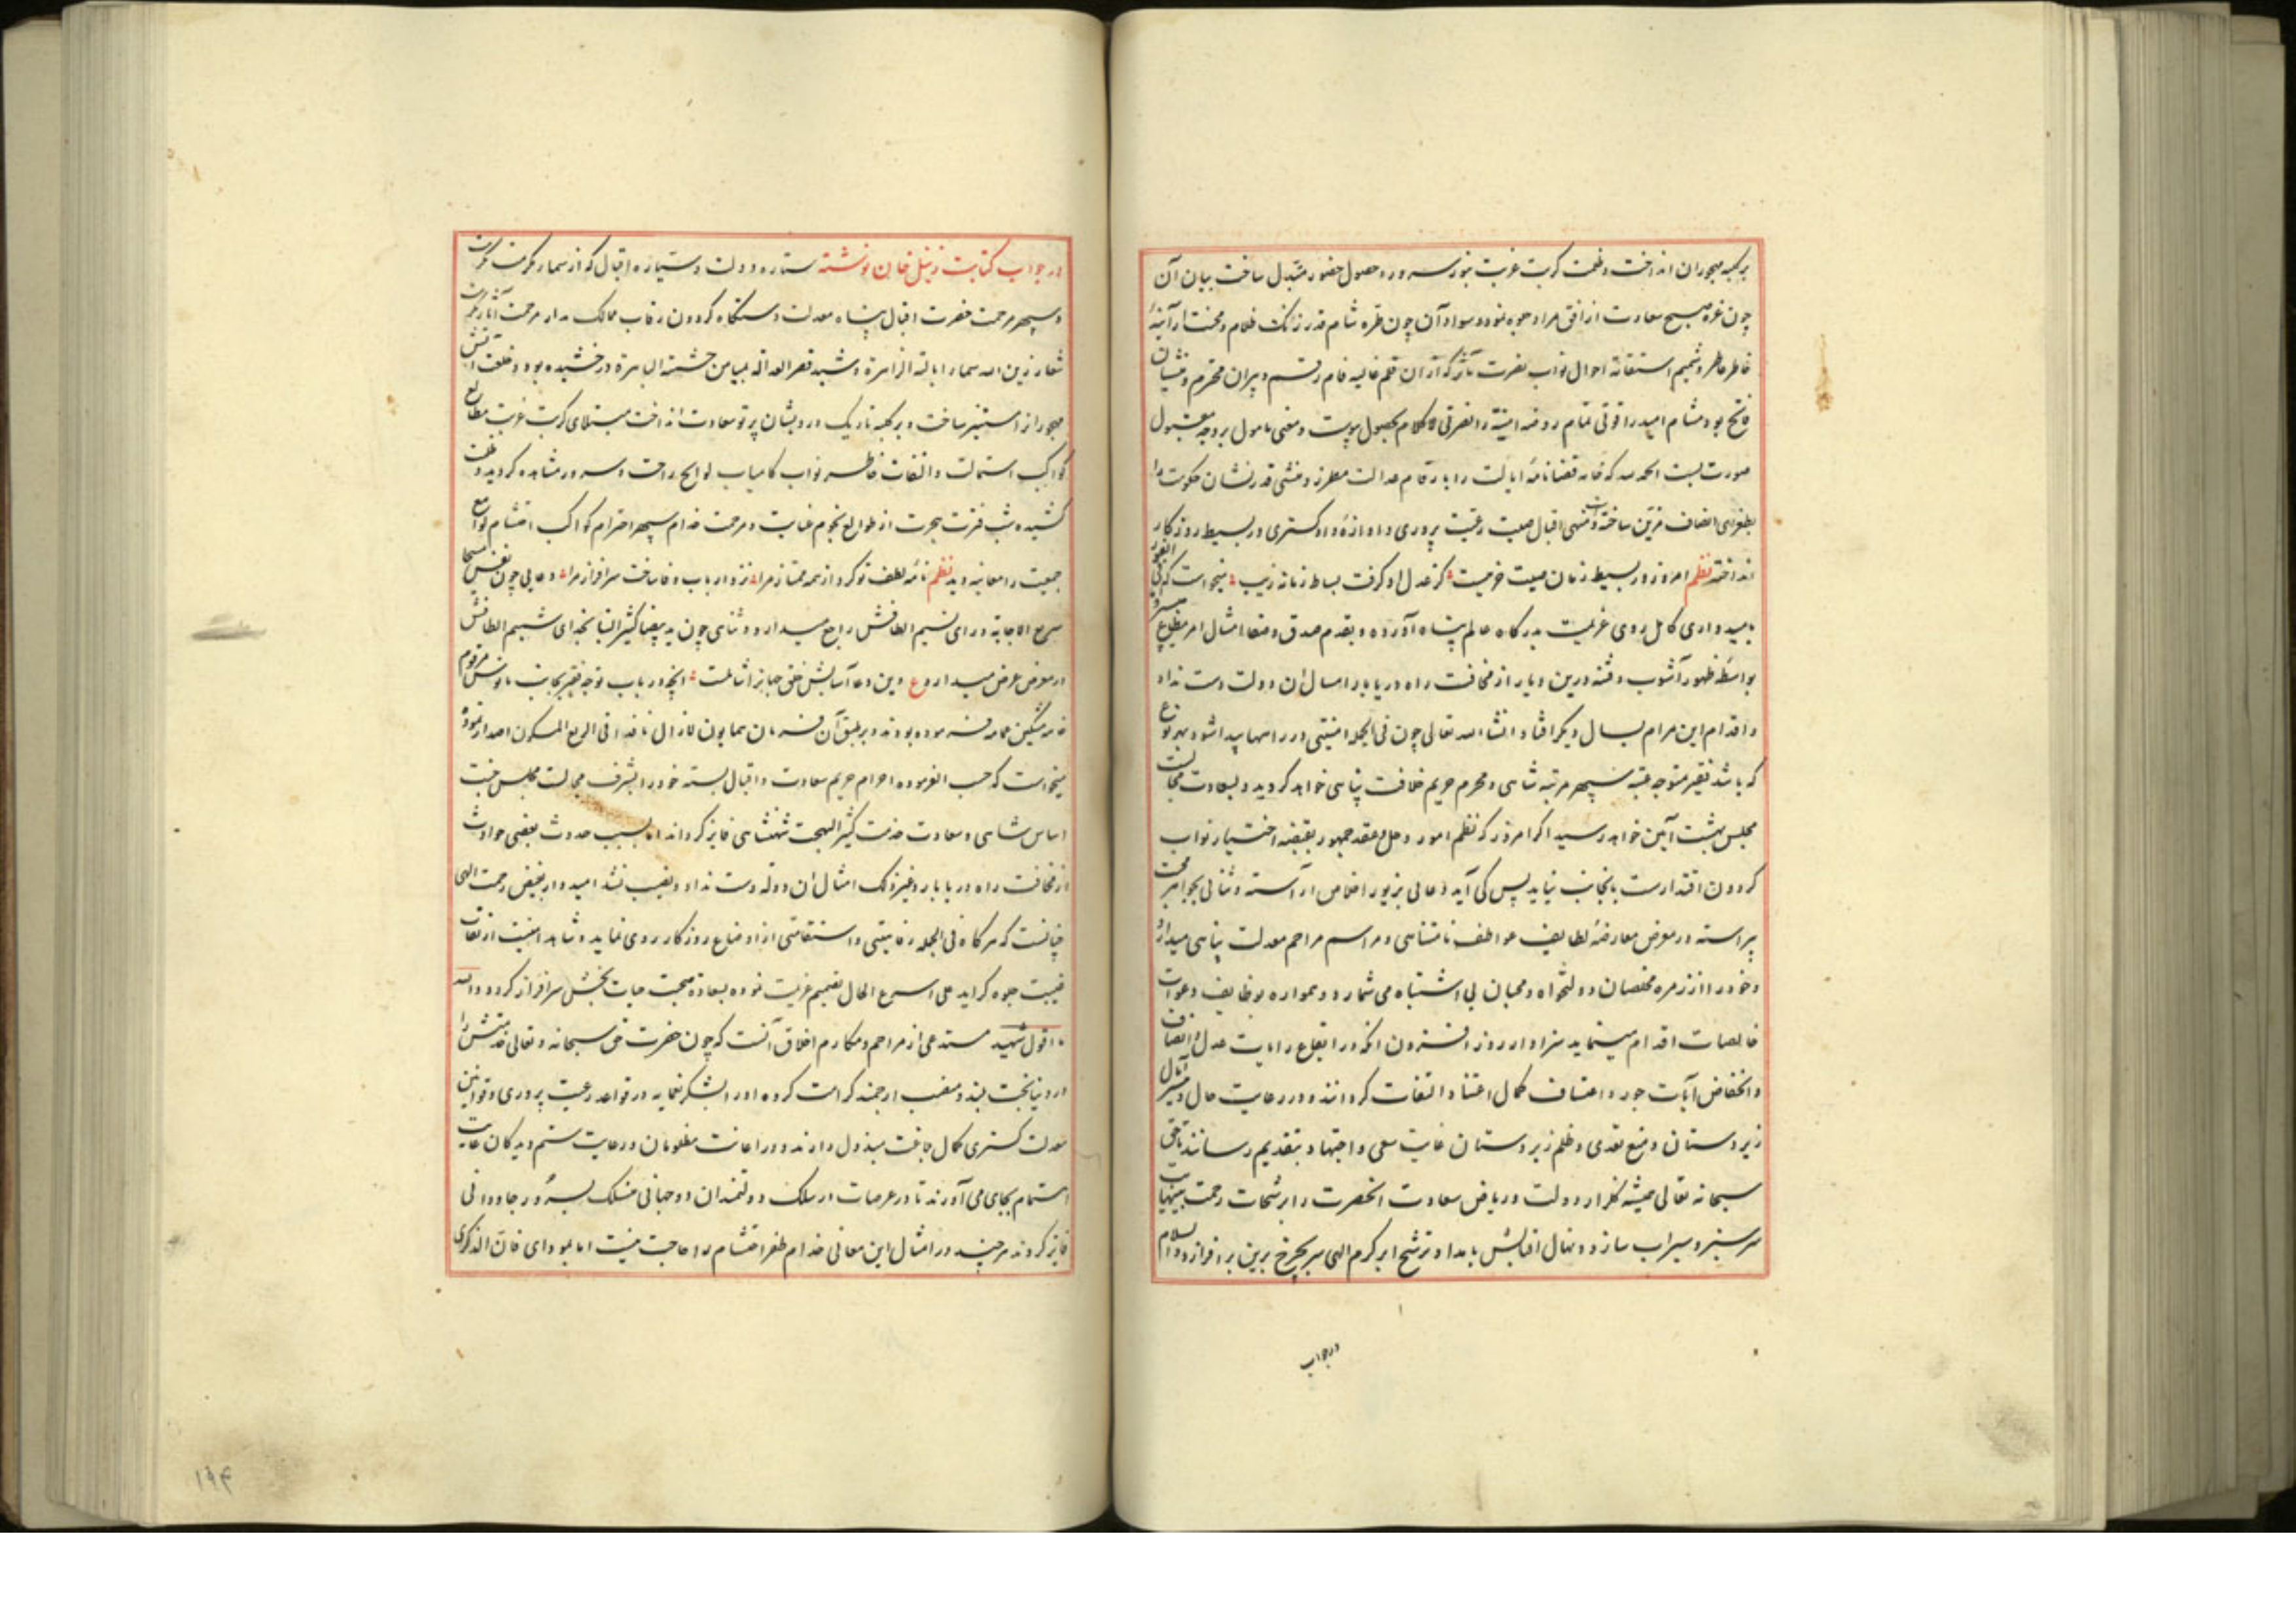 بر کلبه مهجوران انداخت و ظلمت کربت غربت بنور سرور و حصول حضور مبدل ساخت بیان آن
چون غره صبح سعادت از افق مراد جوه نمود و سواد آن چون طره شام قدر زنک ظلام و محنت از آینهٔ
خاطر عاطر و شمیم استقامة احوال نواب نصرت مآثر که از آن قلم غالیه فام رقم و پیران محترم و منشیان
فاتح بود مشام امید را قوتی تمام روضه امنیة را نضرتی لاکلام بحصول پیوست و معنی مامول بر وجه مقبول
صورت بست الحمد لله که خامه قضا نامهٔ ایالت را بارقام عدالت مطرز و منشی قدر نشان حکومت را
بطغرای انصاف مزین ساخته و منهی اقبال صیت رعیت پروری و آوازهٔ دادکستری در بسیط روزکار
انداخته نظم امروز در بسیط زمان صیت خرمیست کز عدل او کرفت بساط زمانه زیب میخواست که فی الفور
بامیدواری کامل روی عزیمت بدرکاه عالم پناه آورده و بقدم صدق و صفا امتثال امر مطاع
بواسطهٔ ظهور آشوب و فتنه درین دیار از مخافت راه دریابار امسال آن دولت دست نداد
و اقدام این مرام بسال دیکر افتاد انشاء الله تعالی چون فی الجمله امنیتی در راهها پیدا شود بهر نوع
که باشد فقیر متوجه عتبه سپهر مرتبه شاهی و محرم حریم خلافت پناهی خواهد کردید و بسعادت مجالست
مجلس بهشت آیین خواهد رسید اکر امروز که نظم امور و حل و عقد جمهور بقبضه اختیار نواب
کردون اقتدارست باینجانب نیاید پس کی آید دعائی بزیور اخلاص آراسته و ثنائی بجواهر محبت
پیراسته در معرض معارضهٔ لطایف عواطف نامتناهی و مراسم مراحم معدلت پناهی میدارد
و خود را از زمره مخلصان دولتخواه و محبان بی اشتباه می شمارد و همواره بوظایف دعوات
خالصات اقدام مینماید سزاوار روز افزون آنکه در ارتفاع رایات عدل و انصاف
و انخفاض آیات جور و اعتساف کمال اعتنا و التفات کردانند و در رعایت حال و تیسیر آمال
زیردستان و منع تعدی و ظلم زبردستان غایت سعی و اجتهاد بتقدیم رسانند تا حق
سبحانه تعالی همیشه کلزار دولت و ریاض سعادت آنحضرت را برشحات رحمت بینهایت
سرسبز و سیراب سازد و نهال اقبالش بامداد ترشح ابر کرم الهی سر بچرخ برین برافرازد و السلام
در جواب
در جواب کتابت زنبیل خان نوشته ستاره دولت و سیاره اقبال که از سماء مکرمت
و سپهر مرحمت حضرت اقبال پناه معدلت دستکاه کردون رقاب ممالک مدار مرحمت آثار
شعار زین الله سماء ایالته الزاهرة و شید قصر العدالة بمیامن حشمته الباهرة درخشیده بود و خلعت
مهجور را مستنیر ساخت و بر کلبه تاریک درویشان پرتو سعادت انداخت مبتلای کربت غربت مطالع
کواکب استمالت و التفات خاطر نواب کامیاب لوایح راحت و سرور مشاهده کردید و محنت
کشیده شب فترت هجرت از طوالع نجوم عنایت و مرحمت خدام سپهر احترام کواکب احتشام لوامع
جمعیت را معاینه دید نظم نامهٔ لطف تو کرد از همه ممتاز مرا نزد ارباب وفا ساخت سرافراز مرا دعایی چون نفس مسیحا
سریع الاجابة در ازای نسیم الطافش راجع میدارد و ثنائی چون ید بیضا کثیر الضیا بحذای شمیم الطافش
در معرض عرض میدارد ع وین دعا آسایش خلق جهانرا شاملست آنچه در باب توجه فقیر بجانب مانوس مرقوم
خامه مشکین عمامه فرموده بودند و بر طبق آن فرمان همایون لازال نافذا فی الربع المسکون اصدار نموده
میخواست که حسب الفرموده احرام حریم سعادت و اقبال بسته خود را بشرف مجالست مجلس جنت
اساس شاهی و سعادت خدمت کثیر البهجت شهنشاهی فایز کرداند اما بسبب حدوث بعضی حوادث
از مخافت راه دریابار و غیر ذلک امثال آن دوله دست نداد و نصیب نشد امیدوار بفیض رحمت الهی
چنانست که هرکاه فی الجمله رفاهیتی و استقامتی از اوضاع روزکار روی نماید و شاهد امنیت از نقاب
غیبت جلوه کر آید علی اسرع الحال تصمیم عزیمت نموده بسعادة صحبت حیات بخش سرافراز کردد و الله
ما اقول شهید مستدعی از مراحم و مکارم اخلاق آنست که چون حضرت حق سبحانه و تعالی خدمتش را
در دنیا بخت بلند و منصب ارجمند کرامت کرده او را بشکر نعما در قواعد رعیت پروری و قوانین
معدلت کستری کمال عاطفت مبذول دارند و در اعانت مظلومان و رعایت ستم دیدکان غایت
اهتمام بجای می آورند تا در عرصات در سلک دولتمندان دو جهانی منسلک بسرور جاودانی
فایز کردند هرچند در امثال این معانی خدام ظفر احتشام را حاجت نیست اما بمودای فان الذکری
۱۹۴